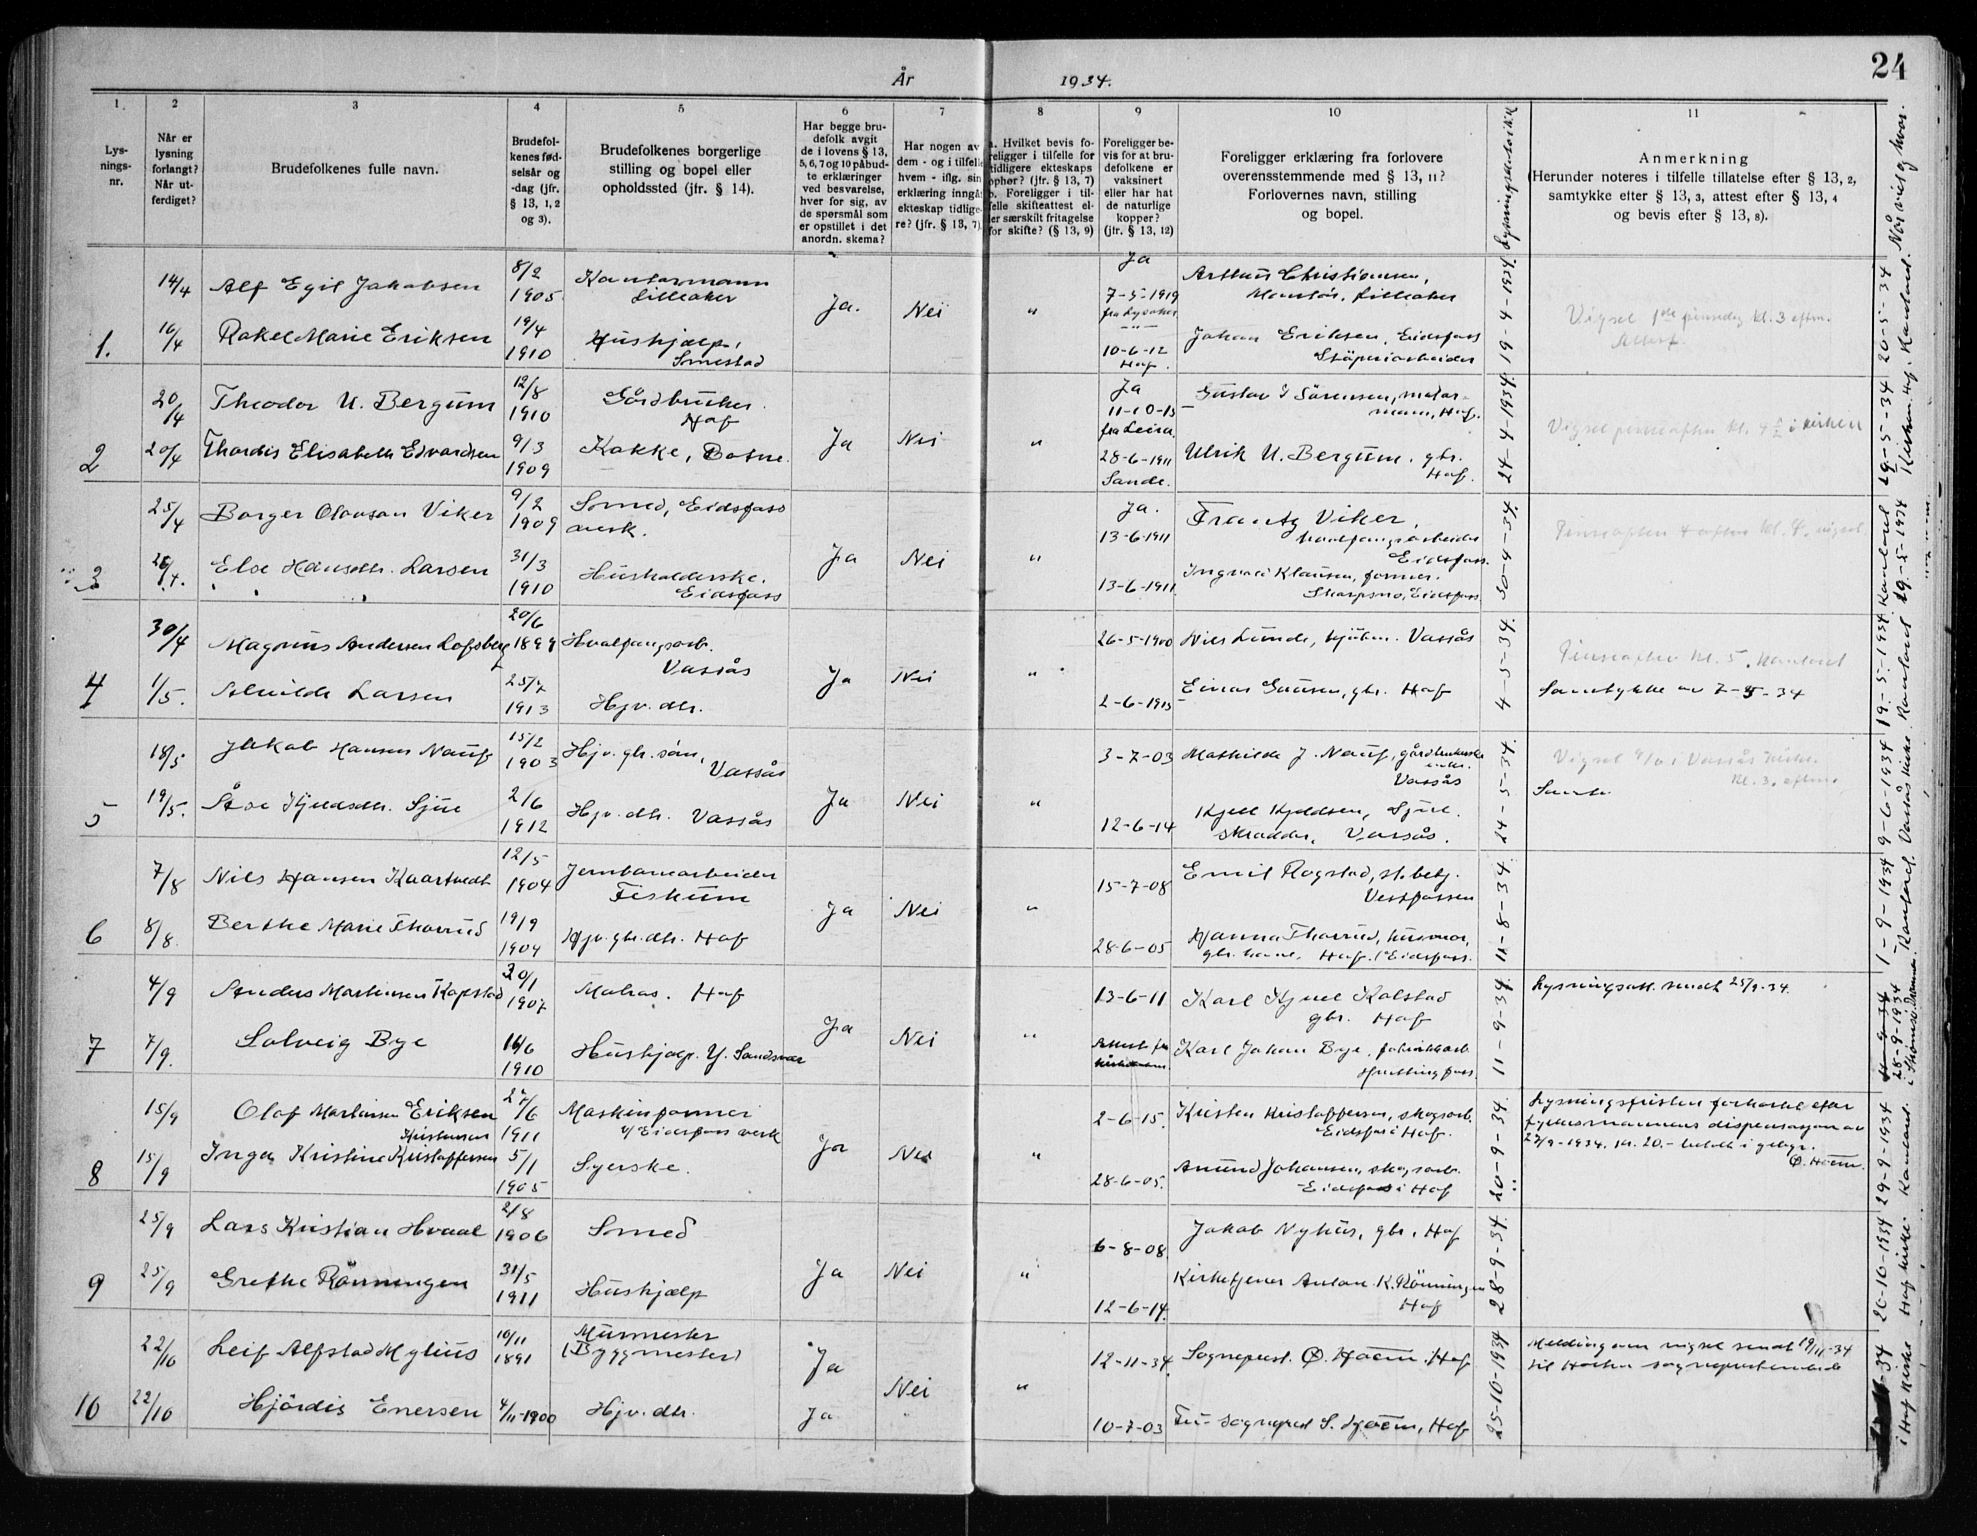 24
År 1934.
1.
2
3
4
5
6
7
8
9
10
11
Lys-
nings-
nr.
Når er
lysning
forlangt?
Når ut-
ferdiget?
Brudefolkenes fulle navn.
Brudefol-
kenes fød-
selsår og
-dag (jfr.
§ 13, 1, 2
og 3).
Brudefolkenes borgerlige
stilling og bopel eller
opholdssted (jfr. § 14).
Har begge bru-
defolk avgit
de i lovens § 13,
5, 6, 7 og 10 påbud-
te erklæringer
ved besvarelse,
hver for sig, av
de spørsmål som
er opstillet i det
anordn. skema?
Har nogen av
dem - og i tilfelle
hvem - iflg. sin
erklæring inngå
ekteskap tidlige-
re? (jfr. § 13, 7)
a. Hvilket bevis fo-
religger i tilfelle for
tidligere ekteskaps
ophør? (jfr. § 13, 7)
b. Foreligger i til-
felle skifteattest el-
ler særskilt fritagelse
for skifte? (§ 13, 9)
Foreligger be-
vis for at bru-
defolkene er
vaksinert
eller har hat
de naturlige
kopper?
(jfr. § 13, 12)
Foreligger erklæring fra forlovere
overensstemmende med § 13, 11?
Forlovernes navn, stilling
og bopel.
Anmerkning
(Herunder noteres i tilfelle tillatelse efter § 13, 2,
samtykke efter § 13, 3, attest efter § 13, 4
og bevis efter § 13, 8).
Når viet og hvor.
1.
14/4 Alf Egil Jakobsen 8/2 1905 Kontormann Lilleaker
Ja. Nei "
Ja 7-5-1919 fra Lysaker
Arthur Christiansen, Lilleaker
16/4 Rakel Marie Eriksen 19/4 1910 Hushjælp, Smestad
10-6-12 Hof.
Johan Eriksen, Eidsfoss
Støperiarbeider
19-4-1934.
Vigsel 1ste pinsedag kl. 3 eftm.
Attest
20-5-34
2
20/4 Theodor U. Bergum 12/8 1910 Gårdbruker. Hof
Ja Nei "
Ja 11-10-15 fra Leira.
Gustav J Sørensen, motor-
mann, Hof.
20/4 Thordis Elisabeth Edvardsen 9/3 1909 Kokke, Botne.
28-6-1911 Sande.
Ulrik U. Bergum. gbr.
Hof.
24-4-1934.
19-5-34
3
25/4 Borger Olavson Viker 9/2 1909 Smed, Eidsfoss
verk.
Ja Nei "
Ja. 13-6-1911
Frantz Viker,
hvalfangstarbeider
Eidsfoss.
26/4. Else Hansdtr. Larsen 31/3 1910 Husholderske.
Eidsfoss
13-6-1911
Ingvald Klausen, former.
Eidsfoss.
30-4-34.
Pinseaften kl. 4, vigsel
19-5-1934
4
30/4 Magnus Andersen Lofsberg 20/6 1899 Hvalfangstarb.
Vassås
Ja Nei "
26-5-1900 Nils Lunde, Vassås
1/5. Alvilde Larsen 25/7 1913 Hjv. dtr.
2-6-1913 Einar Gausen, gbr. Hof
4-5-34.
Pinseaften kl. 5.
Samtykke av 7-5-34
19-5-1934
5
18/5 Jakob Hansen Nauf 15/2 1903 Hjv. gbr. søn,
Vassås
Ja Nei "
3-7-03 Mathilde J. Nauf, gårdbrukerske
Vassås
19/5. Åse Kjeldsdtr. Sjue 2/6 1912 Hjv. dtr. Vassås
12-6-14 Kjell Kjeldsen, Sjue.
skrædder, Vassås.
24-5-34.
Vigsel 9/6 i Vassås kirke.
kl. 3. eftm.
Samt.
9-6-1934
Vassås kirke
6
7/8 Nils Hansen Kaartvedt 12/5 1904 Jernbanearbeider
Fiskum
Ja Nei "
15-7-08 Emil Rogstad, st. betj.
Vestfossen
8/8. Berthe Marie Thorrud 19/9 1904 Hjv. gbr. dtr. Hof
28-6-05 Hanna Thorrud, husmor,
Hof. (Eidsfoss.
11-8-34.
1-9-1934
7
4/9 Anders Martinsen Kopstad 30/1 1907 Matros. Hof
Ja Nei "
13-6-11 Karl Kjuel Kolstad
gbr. Hof
7/9. Solveig Bye 16/6 1910 Hushjælp. Y. Sandsvær
Attest fra
Karl Johan Bye, fabrikkarb.
11-9-34.
Lysningsatt. sendt 25/9-34.
28-9-1934
8
15/9 Olaf Martinsen Eriksen 27/6 1911 Maskinformer
v/ Eidsfoss verk
Ja Nei "
2-6-15. Kristen Kristoffersen, skogsarb.
Eidsfoss i Hof.
Kristensen
15/9 Inga Kristine Kristoffersen 5/1 1905 Syerske.
28-6-05. Amund Johansen, skogsarb.
Eidsfoss i Hof
20-9-34.
Lysningsfristen forkortet efter
fylkesmannens dispensasjon av
27/9-1934. kr. 20.- betalt i gebyr.
Ø. Hoem.
29-9-1934
9
25/9 Lars Kristian Hvaal 2/8 1906 Smed
Ja Nei "
6-8-08. Jakob Nyhus, gbr, Hof
25/9 Grethe Rønningen 31/5 1911 Hushjælp
12-6-14. Kirketjener Anton K. Rønningen
Hof
28-9-34.
20-10-1934
Hof kirke.
10
22/10 Leif Alfstad Mylius 10/11 1891 Murmester
(Byggmester)
Ja Nei "
12-11-34. Sogneprest. Ø. Hoem. Hof
22/10 Hjørdis Enersen 4/11-1900 Hjv. dtr.
Ja
10-7-03 Fru sogneprest S. Hoem, Hof
25-10-1934
Melding om vigsel sendt 19/11-34
til Horten sogneprestembede
i Hof kirke